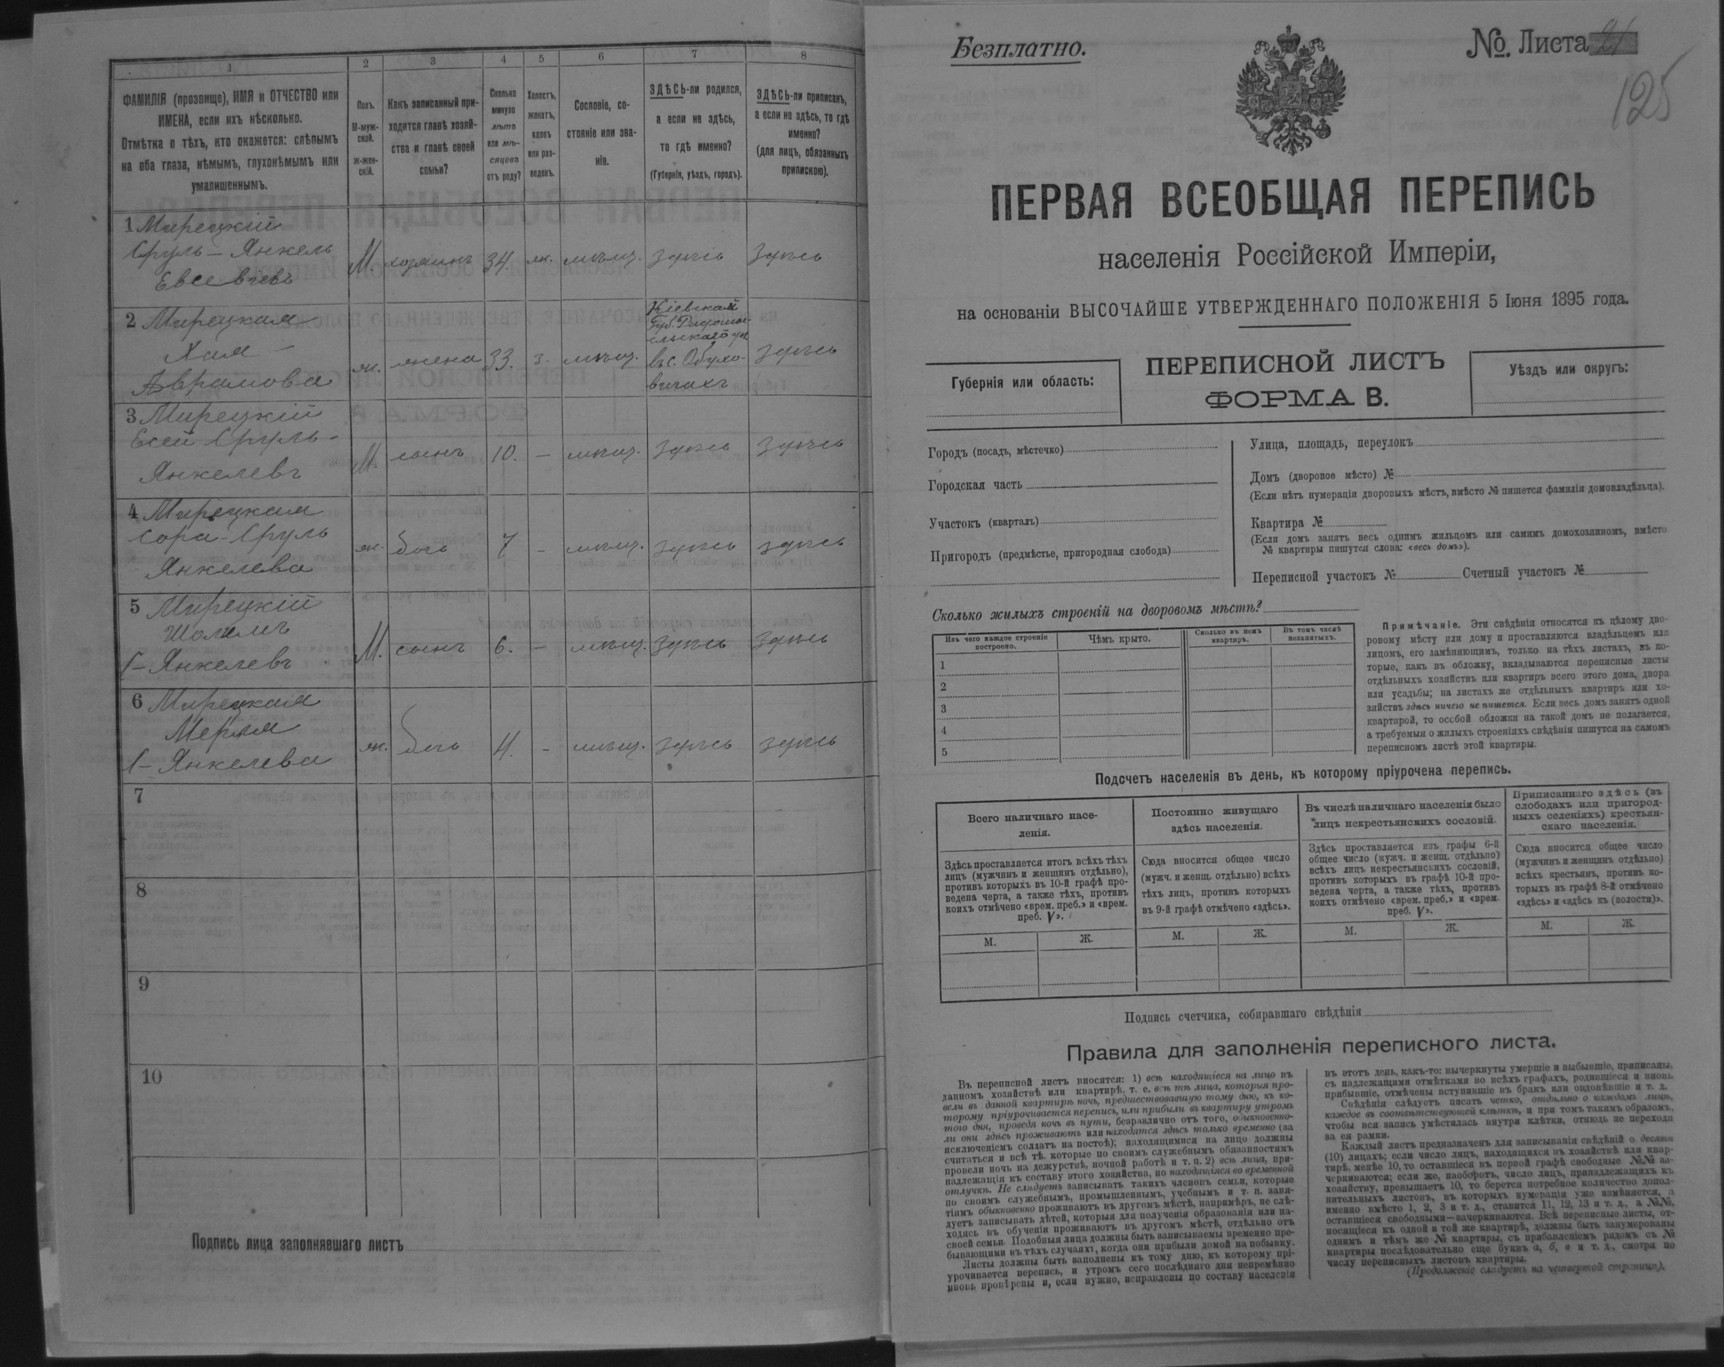 1
2
3
4
5
6
7
8
ФАМИЛІЯ (прозвище), ИМЯ и ОТЧЕСТВО или
ИМЕНА, если ихъ нѣсколько.
Отмѣтка о тѣхъ, кто окажется: слѣпымъ
на оба глаза, нѣмымъ, глухонѣмымъ или
умалишеннымъ.
Полъ.
М-муж-
ской.
ж-жен-
скій.
Какъ записанный при-
ходится главѣ хозяй-
ства и главѣ своей
семьи?
Сколько
минуло
лѣтъ
или мѣ-
сяцевъ
отъ роду?
Холостъ,
женатъ,
вдовъ
или раз-
веденъ.
Сословіе, со-
стояніе или зва-
ніе.
ЗДѢСЬ-ли родился,
а если не здѣсь,
то гдѣ именно?
(Губернія, уѣздъ, городъ).
ЗДѢСЬ-ли приписанъ,
а если не здѣсь, то гдѣ
именно?
(для лицъ, обязанныхъ
припискою).
1 Мирецкій
Сруль - Янкель
Евсевіевъ
М. хозяинъ 34. ж. мѣщ. здѣсь здѣсь
2 Мирецкая
Хая -
Аврамова
ж. жена 33. з. мѣщ.
Кіевская
губ.
въ с. Обухо-
вичахъ
здѣсь
3 Мирецкій
Евсей Сруль -
Янкелевъ
М. сынъ 10. - мѣщ. здѣсь здѣсь
4 Мирецкая
Сора - Сруль
Янкелева
ж. дочь 7 - мѣщ. здѣсь здѣсь
5 Мирецкій
Шолимъ
С- Янкелевъ
М. сынъ 6. - мѣщ. здѣсь здѣсь
6 Мирецкая
Мерям
С- Янкелева
ж. дочь 4. - мѣщ. здѣсь здѣсь
7
8
9
10
Подпись лица заполнявшаго листъ
Безплатно.
№ Листа 21
125
ПЕРВАЯ ВСЕОБЩАЯ ПЕРЕПИСЬ
населенія Россійской Имперіи,
на основаніи ВЫСОЧАЙШЕ УТВЕРЖДЕННАГО ПОЛОЖЕНІЯ 5 Іюня 1895 года.
Губернія или область:
ПЕРЕПИСНОЙ ЛИСТЪ
ФОРМА В.
Уѣздъ или округъ:
Городъ (посадъ, мѣстечко)
Городская часть
Участокъ (кварталъ)
Пригородъ (предмѣстье, пригородная слобода)
Улица, площадь, переулокъ
Домъ (дворовое мѣсто) №
(Если нѣтъ нумераціи дворовыхъ мѣстъ, вмѣсто № пишется фамилія домовладѣльца).
Квартира №
(Если домъ занятъ весь однимъ жильцомъ или самимъ домохозяиномъ, вмѣсто
№ квартиры пишутся слова: «весь домъ»).
Переписной участокъ № Счетный участокъ №
Сколько жилыхъ строеній на дворовомъ мѣстѣ?
Изъ чего каждое строеніе
построено.
Чѣмъ крыто.
Сколько въ немъ
квартиръ.
Въ томъ числѣ
незанятыхъ.
1
2
3
4
5
Примѣчаніе. Эти свѣдѣнія относятся къ цѣлому дво-
ровому мѣсту или дому и проставляются владѣльцемъ или
лицомъ, его замѣняющимъ, только на тѣхъ листахъ, въ ко-
торые, какъ въ обложку, вкладываются переписные листы
отдѣльныхъ хозяйствъ или квартиръ всего этого дома, двора
или усадьбы; на листахъ же отдѣльныхъ квартиръ или хо-
зяйствъ здѣсь ничего не пишется. Если весь домъ занятъ одной
квартирой, то особой обложки на такой домъ не полагается,
а требуемыя о жилыхъ строеніяхъ свѣдѣнія пишутся на самомъ
переписномъ листѣ этой квартиры.
Подсчетъ населенія въ день, къ которому пріурочена перепись.
Всего наличнаго насе-
ленія.
Постоянно живущаго
здѣсь населенія.
Въ числѣ наличнаго населенія было
лицъ некрестьянскихъ сословій.
Приписаннаго здѣсь (въ
слободахъ или пригород-
ныхъ селеніяхъ) крестьян-
скаго населенія.
Здѣсь проставляется итогъ всѣхъ тѣхъ
лицъ (мужчинъ и женщинъ отдѣльно),
противъ которыхъ въ 10-й графѣ про-
ведена черта, а также тѣхъ, противъ
коихъ отмѣчено «врем. преб.» и «врем.
преб. V».
Сюда вносится общее число
(мужч. и женщ. отдѣльно) всѣхъ
тѣхъ лицъ, противъ которыхъ
въ 9-й графѣ отмѣчено «здѣсь».
Здѣсь проставляется изъ графы 6-й
общее число (мужч. и женщ. отдѣльно)
всѣхъ лицъ некрестьянскихъ сословій,
противъ которыхъ въ графѣ 10-й про-
ведена черта, а также тѣхъ, противъ
коихъ отмѣчено «врем. преб.» и «врем.
преб. V».
Сюда вносится общее число
(мужчинъ и женщинъ отдѣльно)
всѣхъ крестьянъ, противъ ко-
торыхъ въ графѣ 8-й отмѣчено
«здѣсь» и «здѣсь къ (волости)».
М. Ж. М. Ж. М. Ж. М. Ж.
Подпись счетчика, собиравшаго свѣдѣнія
Правила для заполненія переписного листа.
Въ переписной листъ вносятся: 1) всѣ находящіеся на лицо въ
данномъ хозяйствѣ или квартирѣ, т. е. всѣ тѣ лица, которыя про-
вели въ данной квартирѣ ночь, предшествовавшую тому дню, къ ко-
торому пріурочивается перепись, или прибыли въ квартиру утромъ
того дня, проведя ночь въ пути, безразлично отъ того, обыкновенно-
ли они здѣсь проживаютъ или находятся здѣсь только временно (за
исключеніемъ солдатъ на постоѣ); находящимися на лицо должны
считаться и всѣ тѣ, которые по своимъ служебнымъ обязанностямъ
провели ночь на дежурствѣ, ночной работѣ и т. п. 2) всѣ лица, при-
надлежащія къ составу этого хозяйства, но находящіяся во временной
отлучкѣ. Не слѣдуетъ записывать такихъ членовъ семьи, которые
по своимъ служебнымъ, промышленнымъ, учебнымъ и т. п. заня-
тіямъ обыкновенно проживаютъ въ другомъ мѣстѣ, напримѣръ, не слѣ-
дуетъ записывать дѣтей, которыя для полученія образованія или на-
ходясь въ обученіи проживаютъ въ другомъ мѣстѣ, отдѣльно отъ
своей семьи. Подобныя лица должны быть записываемы временно пре-
бывающими въ тѣхъ случаяхъ, когда они прибыли домой на побывку.
Листы должны быть заполнены къ тому дню, къ которому прі-
урочивается перепись, и утромъ сего послѣдняго дня непремѣнно
вновь провѣрены и, если нужно, исправлены по составу населенія
въ этотъ день, какъ-то: вычеркнуты умершіе и выбывшіе, приписаны,
съ надлежащими отмѣтками во всѣхъ графахъ, родившіеся и вновь
прибывшіе, отмѣчены вступившіе въ бракъ или овдовѣвшіе и т. д.
Свѣдѣнія слѣдуетъ писать четко, отдѣльно о каждомъ лицѣ,
каждое въ соотвѣтствующей клѣткѣ, и при томъ такимъ образомъ,
чтобы вся запись умѣстилась внутри клѣтки, отнюдь не переходя
за ея рамки.
Каждый листъ предназначенъ для записыванія свѣдѣній о десяти
(10) лицахъ; если число лицъ, находящихся въ хозяйствѣ или квар-
тирѣ, менѣе 10, то оставшіеся въ первой графѣ свободные №№ за-
черкиваются; если же, наоборотъ, число лицъ, принадлежащихъ къ
хозяйству, превышаетъ 10, то берется потребное количество допол-
нительныхъ листовъ, въ которыхъ нумерація уже измѣняется, а
именно вмѣсто 1, 2, 3 и т. д., ставится 11, 12, 13 и т. д., а №№,
оставшіеся свободными—зачеркиваются. Всѣ переписные листы, от-
носящіеся къ одной и той же квартирѣ, должны быть занумерованы
однимъ и тѣмъ же № квартиры, съ прибавленіемъ рядомъ съ №
квартиры послѣдовательно еще буквъ а, б, в и т. д., смотря по
числу переписныхъ листовъ квартиры.
(Продолженіе слѣдуетъ на четвертой страницѣ).